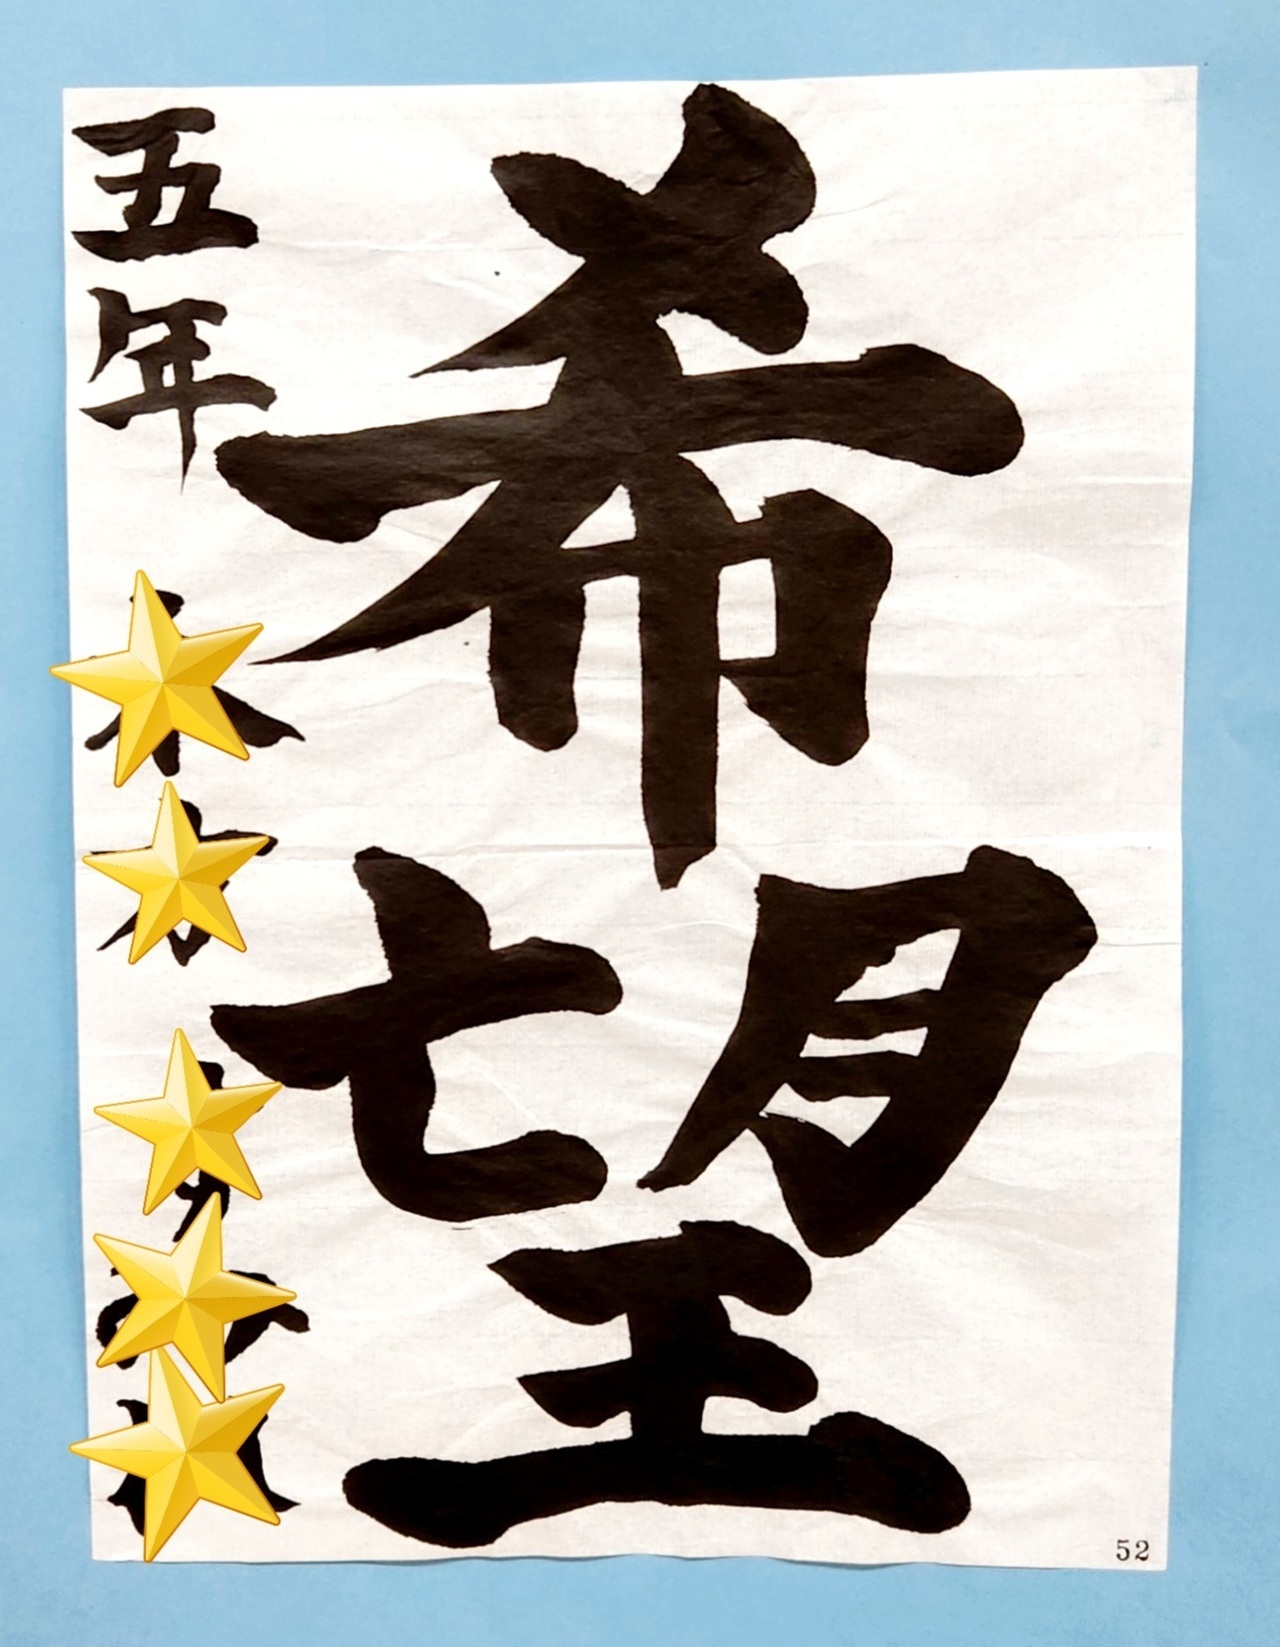 希望
五年
52